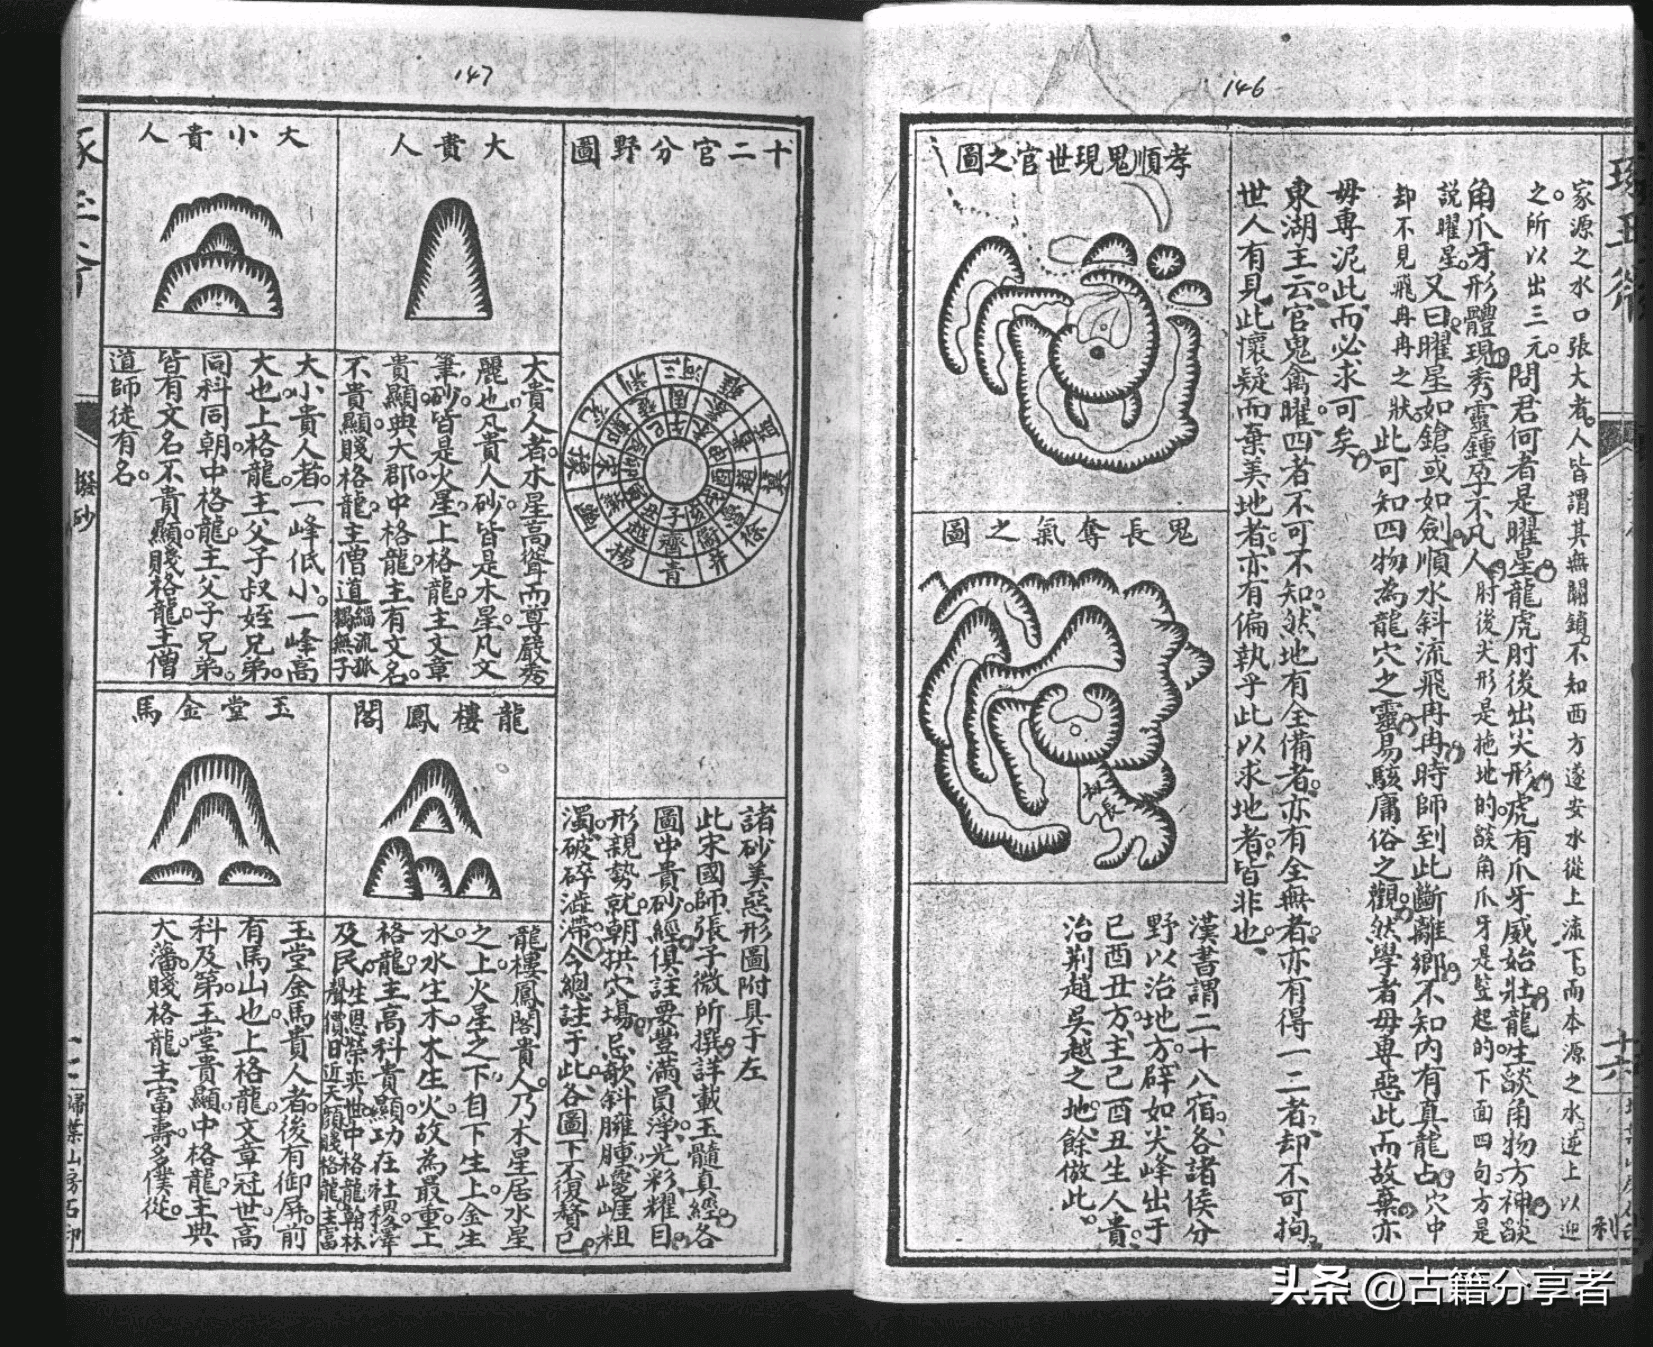 146
家源之水口張大者人皆謂其無關鎖不知西方遂安水從上流下而本源之水逆上以迎
之所以出三元問君何者是曜星龍虎肘後出尖形虎有爪牙威始壯龍生燄角物方神燄
角爪牙形體現秀靈鍾孕不凡人肘後尖形是拖地的燄角爪牙是豎起的下面四句方是
說曜星又曰曜星如鎗或如劍順水斜流飛冉冉時師到此斷離鄉不知內有真龍占穴中
却不見飛冉冉之狀此可知四物為龍穴之靈易駭庸俗之觀然學者毋專惡此而故棄亦
毋專泥此而必求可矣
東湖王云官鬼禽曜四者不可不知然地有全備者亦有全無者亦有得一二者却不可拘
世人有見此懷疑而棄美地者亦有偏執乎此以求地者皆非也
孝順鬼現世官之圖
鬼長奪氣之圖
漢書謂二十八宿各諸侯分
野以治地方辟如尖峰出于
巳酉丑方主己酉丑生人貴
治荆趙吳越之地餘倣此
147
十二官分野圖
諸砂美惡形圖附具于左
此宋國師張子微所撰詳載玉髓真經各
圖中貴砂經俱註要豐滿員淨光彩耀目
形親勢就朝拱穴場忌欹斜臃腫巉岏粗
濁破碎澁滯今總註于此各圖下不復贅已
大貴人
大貴人者木星高聳而尊嚴秀
麗也凡貴人砂皆是木星凡文
筆砂皆是火星上格龍主文章
貴顯典大郡中格龍主有文名
不貴顯賤格龍主僧道緇流孤獨無子
大小貴人
大小貴人者一峰低小一峰高
大也上格龍主父子叔姪兄弟
同科同朝中格龍主父子兄弟
皆有文名不貴顯賤格龍主僧
道師徒有名
龍樓鳳閣
龍樓鳳閣貴人乃木星居水星
之上火星之下自下生上金生
水水生木木生火故為最重上
格龍主高科貴顯功在社稷澤
及民生恩榮奕世中格龍翰林
聲價日近天顏賤格龍主富
玉堂金馬
玉堂金馬貴人者後有御屏前
有馬山也上格龍文章冠世高
科及第玉堂貴顯中格龍主典
大藩賤格龍主富壽多僕從
撥砂
歸葉山房石印
头条 @古籍分享者